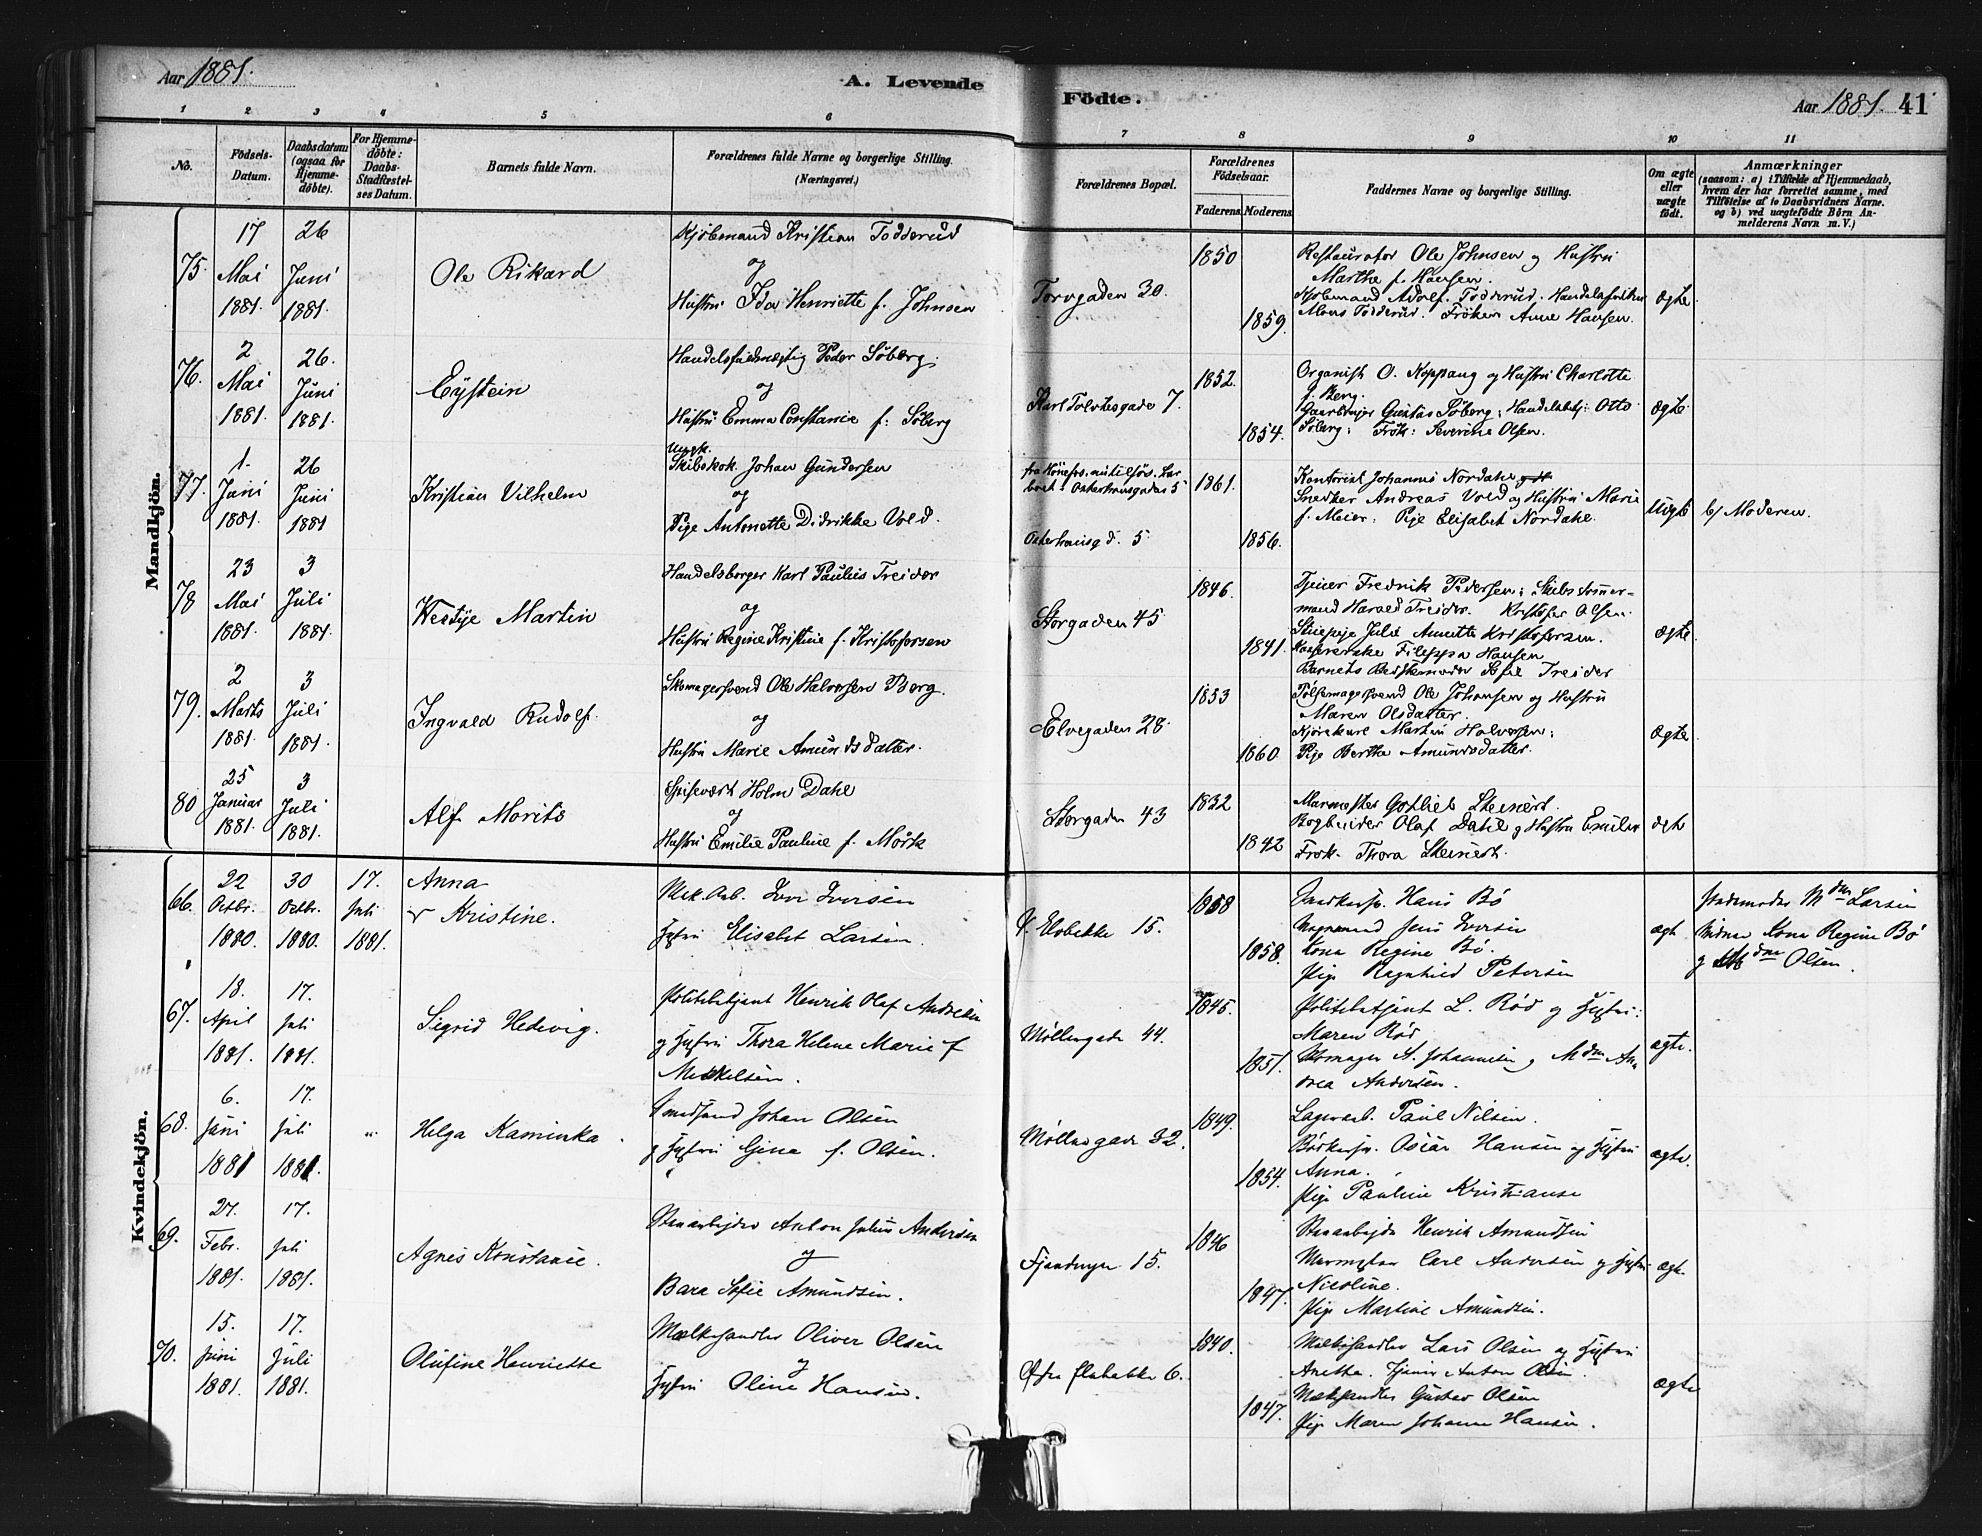 Aar 1881.
A. Levende
Födte.
Aar 1881. 41
1 2 3 4 5 6 7 8 9 10 11
No.
Födsels-Datum.
Daabsdatum (ogsaa for Hjemme-döbte).
For Hjemme-döbte: Daabs-Stadfæstel-ses Datum.
Barnets fulde Navn.
Forældrenes fulde Navne og borgerlige Stilling.
(Næringsvei.)
Forældrenes Bopæl.
Forældrenes Födselsaar.
Faderens. Moderens.
Faddernes Navne og borgerlige Stilling.
Om ægte eller uægte födt.
Anmærkninger
(saasom: a) i Tilfælde af Hjemmedaab,
hvem der har forrettet samme, med
Tilföielse af to Daabsvidners Navne.
og b) ved uægtefödte Börn An-
melderens Navn m. V.)
Mandkjön.
75. 17 Mai 1881. 26 Juni 1881.
Ole Rikard
Kjöbmand Kristian Todderud
og
Hustru Ida Henriette f. Johnsen
Torvgaden 30.
1850
1859.
Restauratør Ole Johnsen og Hustru
Marthe f. Hansen.
Kjöbmand Adolf Todderud.
Mons Todderud. Fröken Anne Hansen.
ægte
76. 2 Mai 1881. 26. Juni 1881.
Eystein
Peder Söberg.
og
Hustru Emma Constance f. Söberg
7.
1852.
1854.
Organist O. Koppang og Hustru Charlotte
f. Berg.
Gustav Söberg; Otto
Söberg; Frök: Severine Olsen.
ægte
77. 1. Juni 1881. 26 Juni 1881
Kristian Vilhelm
Ungk.
Skibskok Johan Gundersen
og
Pige Antonette Didrikke Vold.
Osterhausgaden 5
Osterhausgd. 5
1861.
1856.
Kontorist Johannes Nordahl
Snedker Andreas Vold og Hustru Marie
f. Meier; Pige Elisabet Nordahl.
Uægte
b/ Moderen.
78 23 Mai 1881. 3 Juli 1881.
Westye Martin
Handelsborger Karl Paulus Treider
og
Hustru Regine Kristine f. Kristofersen
Storgaden 45
1846.
1841.
Tjener Fredrik Pedersen; Skibstømer-
mand Harald Treider. Kristofer Olsen.
Stuepige Julie Annette Kristofersen.
Filippa Hansen
Barnets Bedstemoder Sofie Treider
ægte
79. 2 Marts 1881. 3 Juli 1881.
Ingvald Rudolf.
Skomagersvend Ole Halvorsen Berg.
og
Hustru Marie Amundsdatter.
Elvegaden 28.
1853
1860
Pølsemagersvend Ole Johansen og Hustru
Maren Olsdatter.
Kjörekarl Martin Halvorsen;
Pige Berthe Amundsdatter.
ægte
80 25 Januar 1881. 3 Juli 1881.
Alf Morits
Spisevært Holm Dahl
og
Hustru Emilie Pauline f. Mörk
Storgaden 43
1832
1842
Murmester Gotlieb Steinert.
Bogbinder Olaf Dahl og Hustru Emilie
Frøk. Thora Steinert.
ægte
Kvindekjön.
66. 22 Octbr. 1880. 30 Octbr. 1880. 17. Juli 1881.
Anna
Kristine.
Mek. Arb. Iver Iversen
Hustru Elisabet Larsen.
15.
1858
1858.
Snedkersv. Hans Bø
Jens Iversen
Kona Regine Bø.
Pige Ragnhild Petersen
ægte
Mdm Larsen
Vidner Kona Regine Bø
og Mdm Olsen.
67. 18. April 1881. 17. Juli 1881.
Sigrid Hedevig.
Politibetjent Henrik Olaf Andersen
og Hustru Thora Helene Marie f
Mikkelsen.
Møllergade 44.
1845.
1851.
Politibetjent L. Rød og Hustru:
Maren Rød
Skomager A. Johannesen og Mdm An-
drea Andersen.
ægte.
68. 6. Juni 1881 17. Juli 1881.
"
Helga Kaminka.
Smedsvend Johan Olsen
og Hustru Gina f. Olsen.
Møllergade 32.
1849.
1854.
Lagerarb. Paul Nilsen.
Bødkersv. Oscar Hansen og Hustru
Anna.
Pige Pauline Kristianse
ægte.
69. 27. Febr. 1881. 17. Juli 1881.
Agnes Konstance.
Stenarbejder Anton Julius Andersen
og
Bara Sofie Amundsen.
15.
1846
1847.
Stenarbejder Henrik Amundsen
Murmester Carl Andersen og Hustru
Nicoline.
Pige Martine Amundsen.
ægte.
70. 15. Juni 1881. 17. Juli 1881.
Olufine Henriette
Mælkehandler Oliver Olsen
og
Hustru Oline Hansen.
6.
1840.
1847.
Mælkehandler Lars Olsen og Hustru
Anethe. Tjener Anton Olsen.
Mælkehandler Gustav Olsen
Pige Maren Johanne Hansen.
ægte